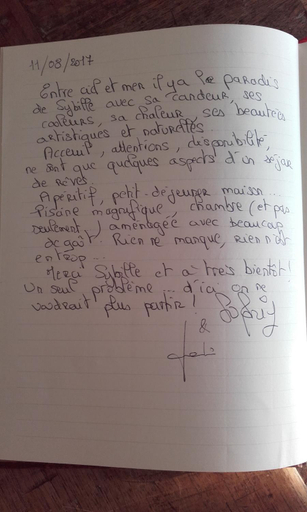 11/08/2017
Entre ciel et mer il y a le paradis
de Sybille avec sa candeur, ses
couleurs, sa chaleur, ses beautés
artistiques et naturelles
Acceuil, attentions, disponibilité,
ne sont que quelques aspects d'un séjour
de rêves
Apéritif, petit-déjeuner maison
Piscine magnifique, chambre (et pas
seulement) aménagée avec beaucoup
de goût. Rien ne manque, rien n'est
en trop...
Merci Sybille et à très bientôt !
Un seul problème... d'ici on ne
voudrait plus partir !
&